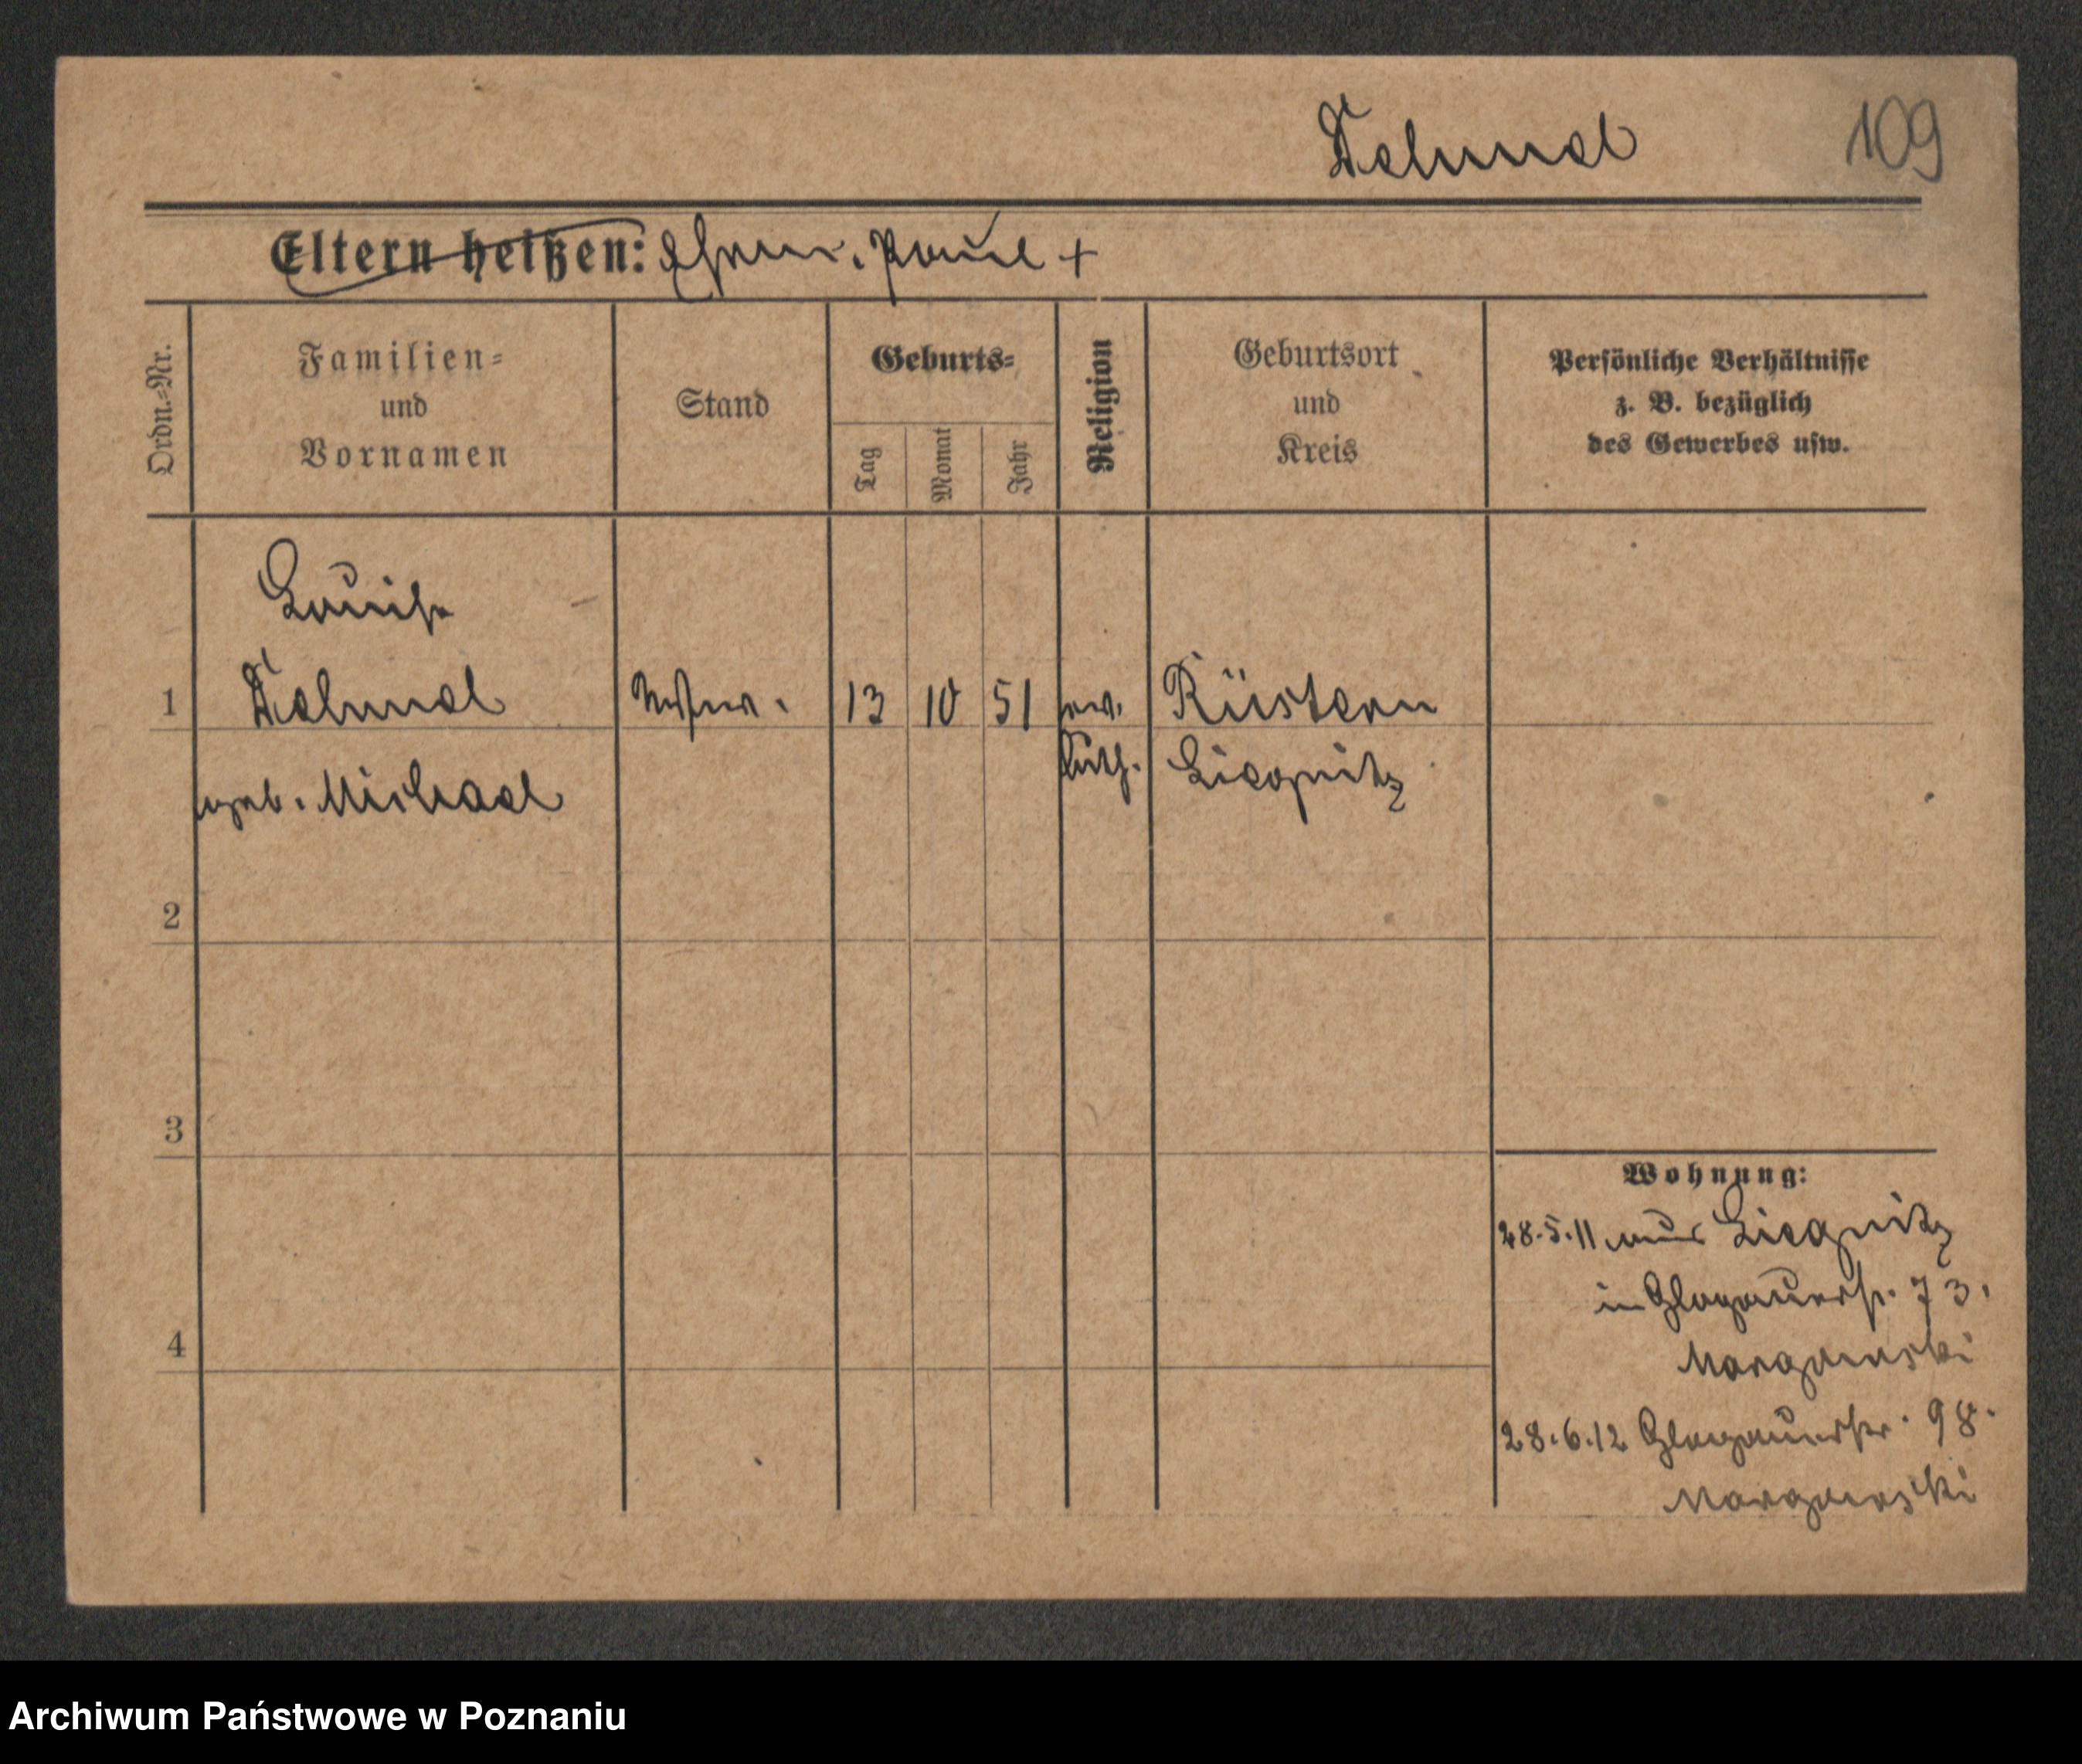 Dehmel 109
Eltern heißen: Ehem. Paul +
Ordn.-Nr.
Familien-
und
Vornamen
Stand
Geburts-
Tag
Monat
Jahr
Religion
Geburtsort
und
Kreis
Persönliche Verhältnisse
z. B. bezüglich
des Gewerbes usw.
Louise
1 Dehmel Wwe. 13 10 51 ev. Rüstern
geb. Michael luth. Liegnitz
2
3
4
Wohnung:
28.5.11 aus Liegnitz
in Glogauerstr. 73.
28.6.12 Glogauerstr. 98.
Archiwum Państwowe w Poznaniu